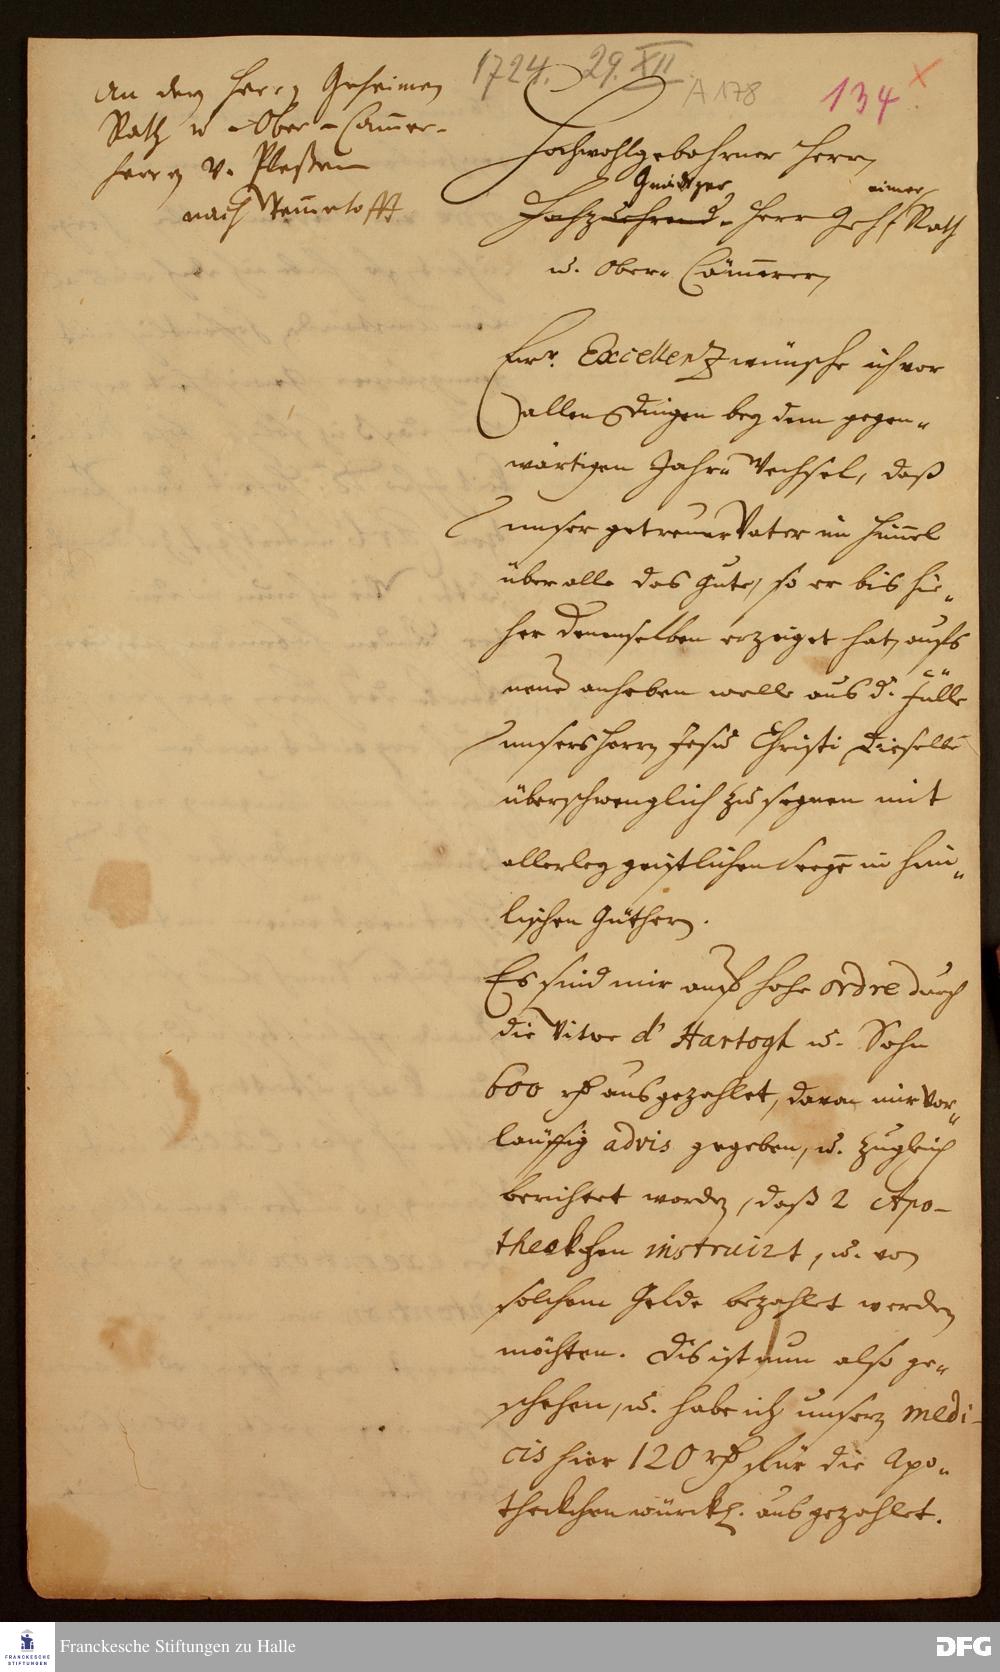 1724. 29. XII.
A 178
134
An den Herrn Geheimen
Rath u Ober-Cammer-
herrn v. Plessen
nach
Hochwohlgebohrner Herr,
Gnädiger
Hochzuehrend. Herr Geh. Rath
eimer
u. Ober-Cämmerer,
Ew. Excellentz wünsche ich vor
allen Dingen bey dem gegen-
wärtigen Jahrs Wechsel, daß
unser getreuer Vater im Himel
über alle das Gute, so er bis hie-
her denenselben erzeiget hat, aufs
neue anheben wolle aus d. Fülle
unsers Herrn Jesu Christi Dieselbe
überschwenglich zu segnen mit
allerley geistlichen Seegen in him-
lischen Güthern.
Es sind mir auf hohe ordre durch
die Vitwe d' Hartogh u. Sohn
600 rth ausgezahlet, davon mir vor-
läuffig advis gegeben, u. zugleich
berichtet worden, daß 2 Apo-
theckchen instruirt, u. von
solchem Gelde bezahlet werden
möchten. Dis ist nun also ge-
schehen, u. habe ich unsern medi-
cis hier 120 rth für die Apo-
theckchen würckl. ausgezahlet.
Franckesche Stiftungen zu Halle
FRANCKESCHE
STIFTUNGEN
DFG